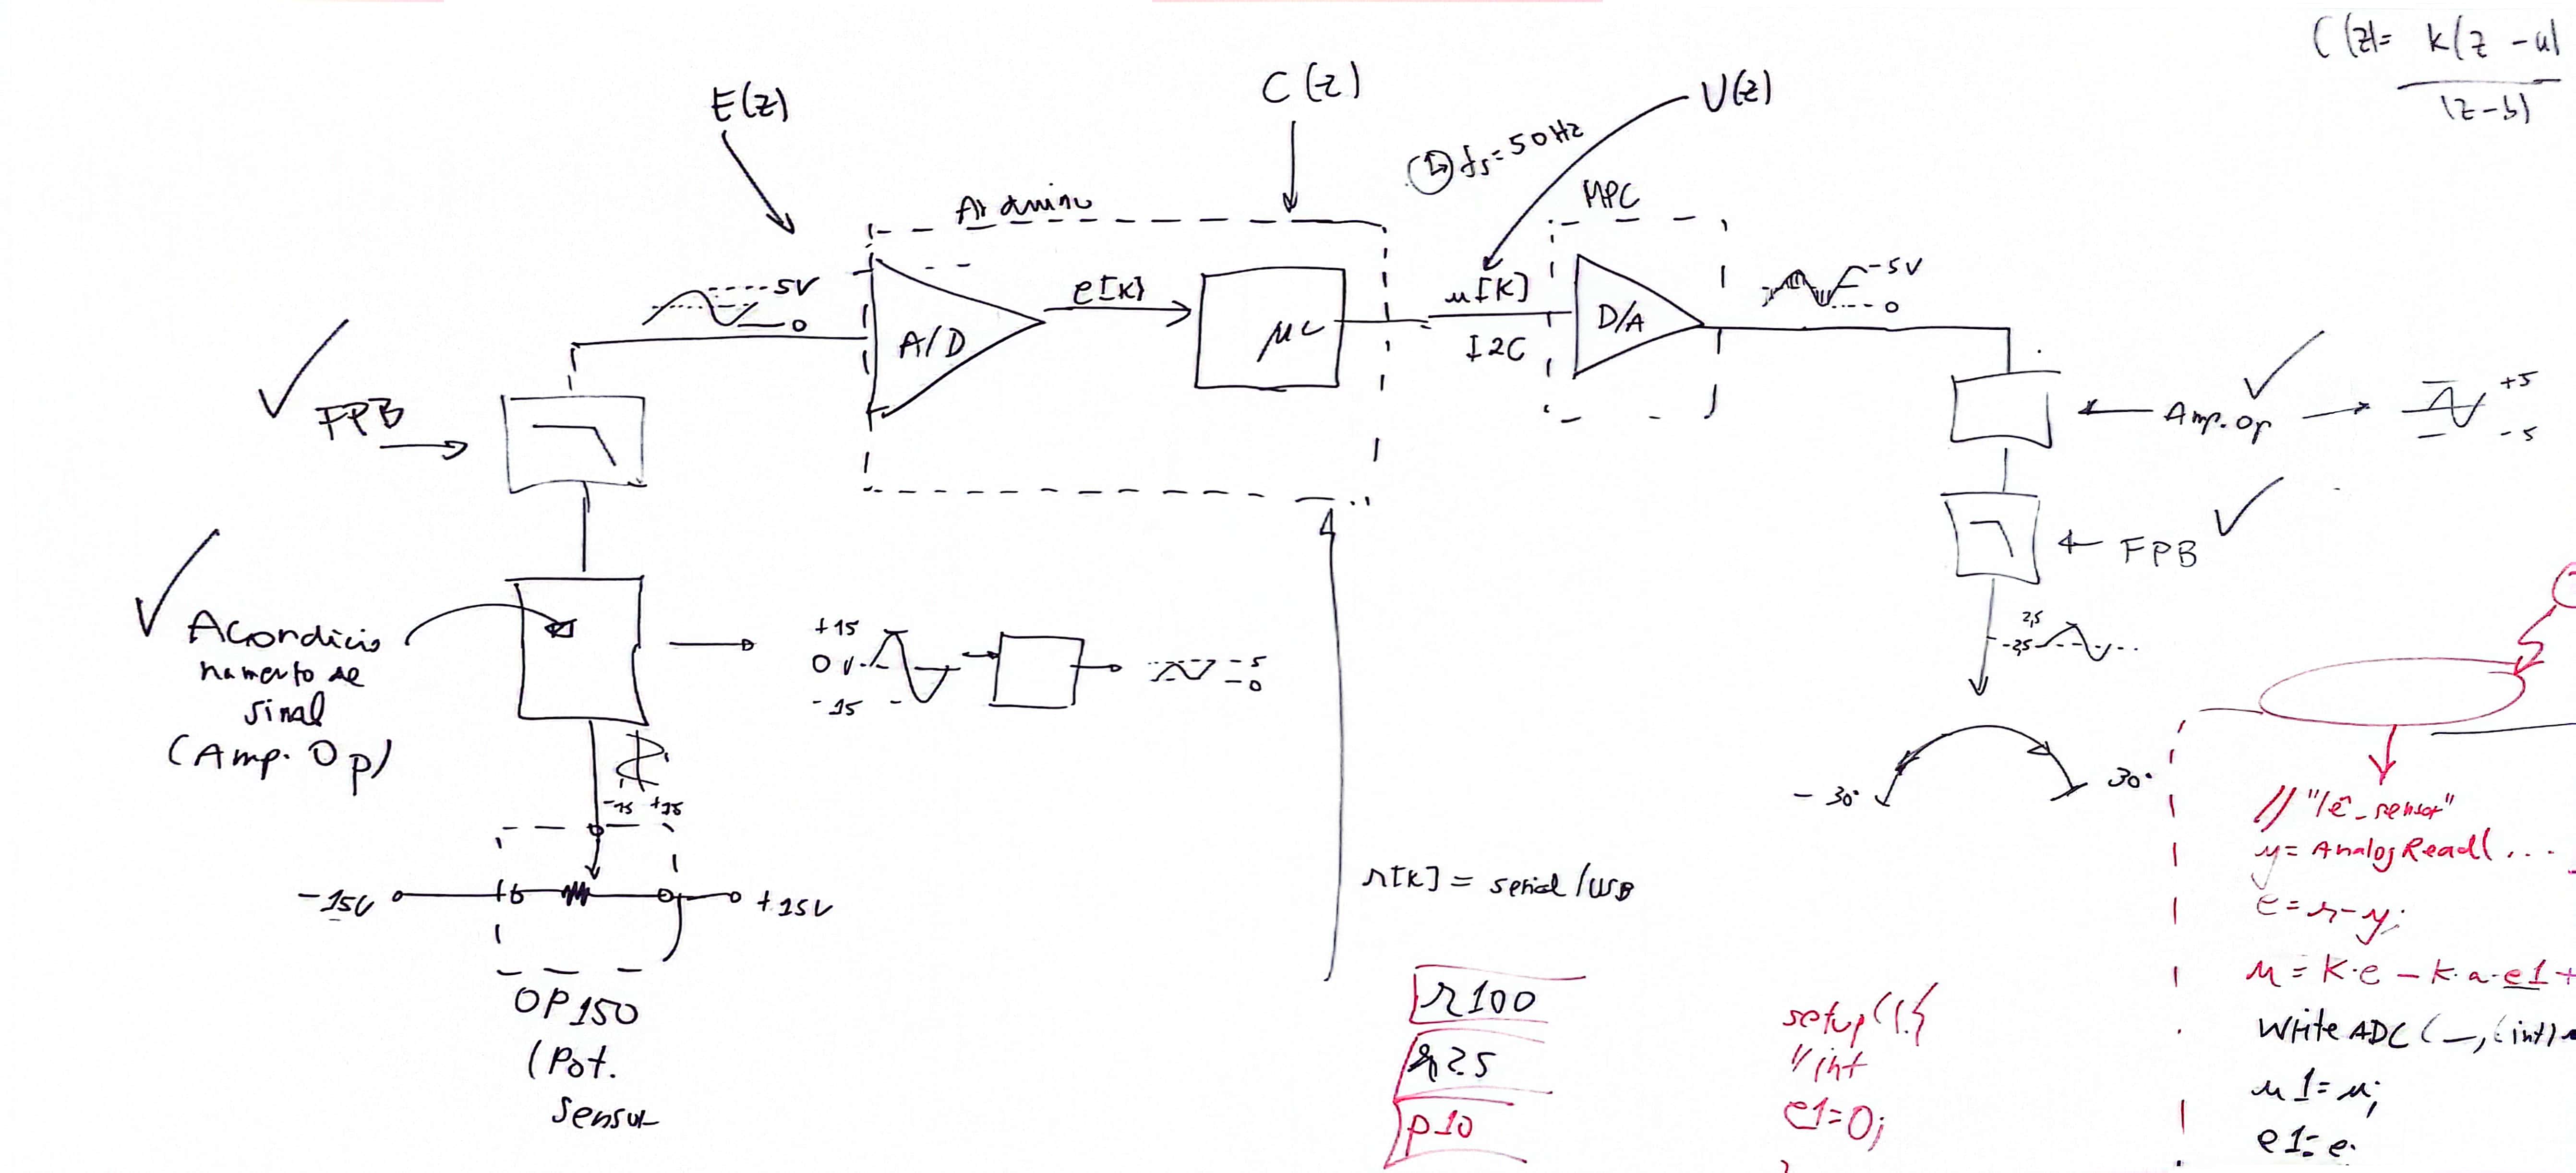 C(z)= k(z-a)
(z-b)
E(z)
C(z)
U(z)
fs=50Hz
Arduino
MPC
5V
0
A/D
e[k]
μC
u[k]
I2C
D/A
-5V
0
FPB
Amp.Op
+5
-5
FPB
2,5
-2,5
-30°
30°
Acondicio
namento de
sinal
(Amp. Op)
+15
0V
-15
-5
-0
-15 +15
-15V
+15V
OP150
(Pot.
Sensor
r[k] = serial/USB
r100
r25
p10
setup(){
//int
e1=0;
}
// "lê_sensor"
y= AnalogRead(...
e=r-y;
u=k.e-k.a.e1+
Write ADC(_,(int)
u1=u;
e1=e.